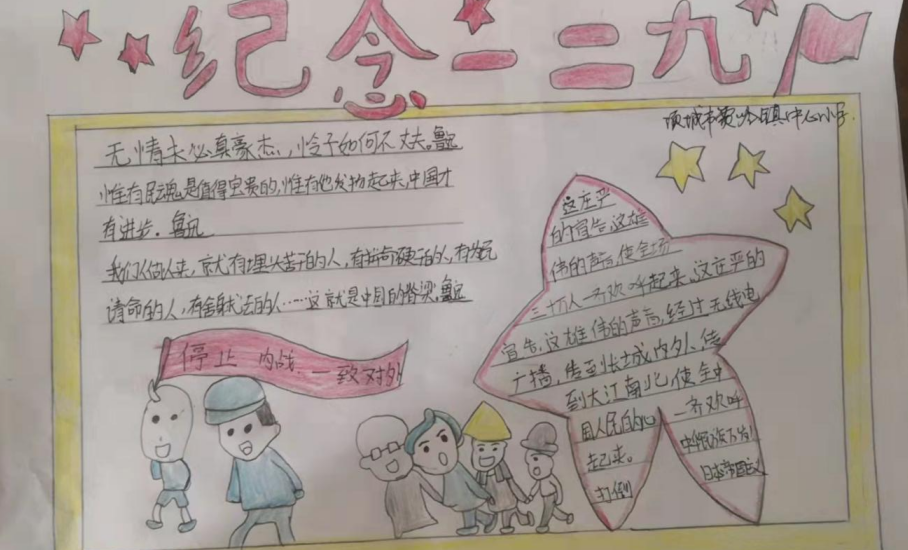 纪念一二九
项城市贾岭镇中心小学
无情未必真豪杰,怜子如何不丈夫。鲁迅
惟有民魂是值得宝贵的,惟有他发扬起来,中国才
有进步. 鲁迅
我们从古以来,就有埋头苦干的人,有拼命硬干的人,有为民
请命的人,有舍身求法的人……这就是中国的脊梁。鲁迅
停止 内战.一致对外
这庄严
的宣告,这雄
伟的声音,使全场
三十万人一齐欢呼起来。这庄严的
宣告,这雄伟的声音,经过无线电
广播,传到长城内外、传
到大江南北,使全中
国人民的心
一齐欢呼
起来。
中华民族万岁!
打倒
日本帝国主义